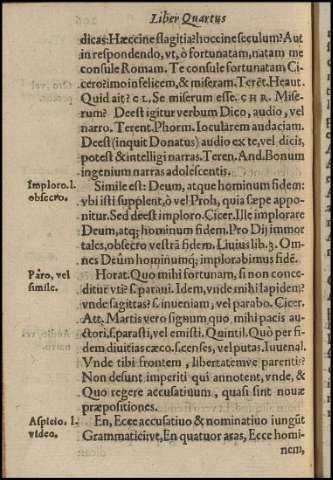 Liber Quartus
dicas: Hæccine flagitia? hoccine seculum? Aut
in respondendo, vt, ô fortunatam, natam me
consule Romam. Te consule fortunatam Ci-
cero? imo infelicem, & miseram. Terēt. Heaut.
Quid ait? CL. Se miserum esse. CHR. Mise-
rum? Deest igitur verbum Dico, audio, vel
narro. Terent. Phorm. Iocularem audaciam.
Deest (inquit Donatus) audio ex te, vel dicis,
potest & intelligi narras. Teren. And. Bonum
ingenium narras adolescentis.
Imploro. l.
obsecro.
Simile est: Deum, atque hominum fidem:
vbi isti supplent, ô vel Proh, quia sæpe appo-
nitur. Sed deest imploro. Cicer. Ille implorare
Deum, atq; hominum fidem. Pro Dij immor
tales, obsecro vestrā fidem. Liuius lib. 3. Om-
nes Deûm hominumq; implorabimus fidē.
Pāro, vel
simile.
Horat. Quo mihi fortunam, si non conce-
ditur vti? s. paraui. Idem, vnde mihi lapidem?
vnde sagittas? s. inueniam, vel parabo. Cicer.
Att. Martis vero signum quo mihi pacis au-
ctori. s. parasti, vel emisti. Quintil. Quò per fi-
dem diuitias cæco. s. censes, vel putas. Iuuenal.
Vnde tibi frontem, libertatemve parentis?
Non desunt imperiti qui annotent, vnde, &
Quo regere accusatiuum, quasi sint nouæ
præpositiones.
Aspicio. l.
video.
En, Ecce accusatiuo & nominatiuo iungūt
Grammatici: vt, En quatuor aras, Ecce homi-
nem,